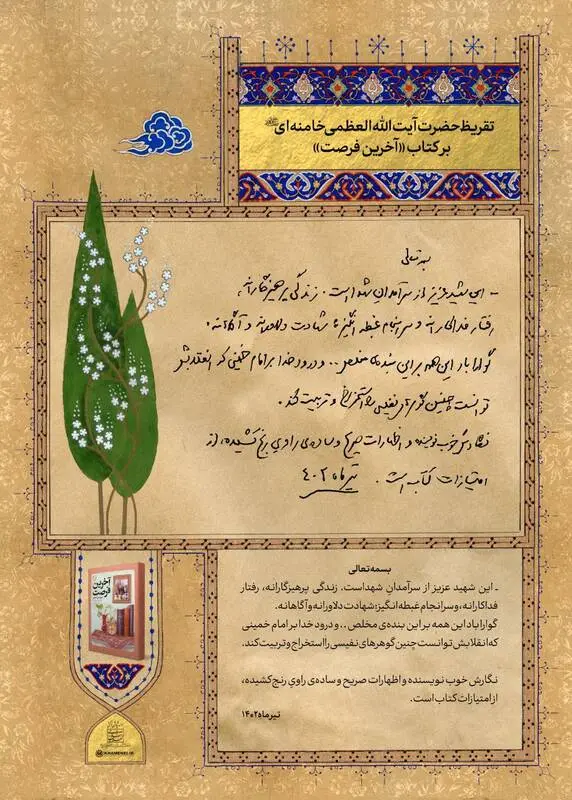 تقریظ حضرت آیت الله العظمی خامنه‌ای
بر کتاب «آخرین فرصت»
بسمه تعالی
- این شهید عزیز از سرآمدان شهدا است. زندگی پرهیزگارانه،
رفتار فداکارانه و سرانجام غبطه انگیز: شهادت دلاورانه و آگاهانه.
گوارا باد این همه بر این بنده‌ی مخلص .. و درود خدا بر امام خمینی که انقلابش
توانست چنین گوهرهای نفیسی را استخراج و تربیت کند.
نگارش خوب نویسنده و اظهارات صریح و ساده‌ی راوی رنج کشیده، از
امتیازات کتاب است. تیرماه ۴۰۲
آخرین
فرصت
بسمه تعالی
ـ این شهید عزیز از سرآمدانِ شهداست. زندگی پرهیزگارانه، رفتار
فداکارانه، و سرانجام غبطه انگیز: شهادت دلاورانه و آگاهانه.
گوارا باد این همه بر این بنده‌ی مخلص .. و درود خدا بر امام خمینی
که انقلابش توانست چنین گوهرهای نفیسی را استخراج و تربیت کند.
نگارش خوب نویسنده و اظهارات صریح و ساده‌ی راویِ رنج کشیده،
از امتیازات کتاب است.
تیرماه ۱۴۰۲
KHAMENEI.IR